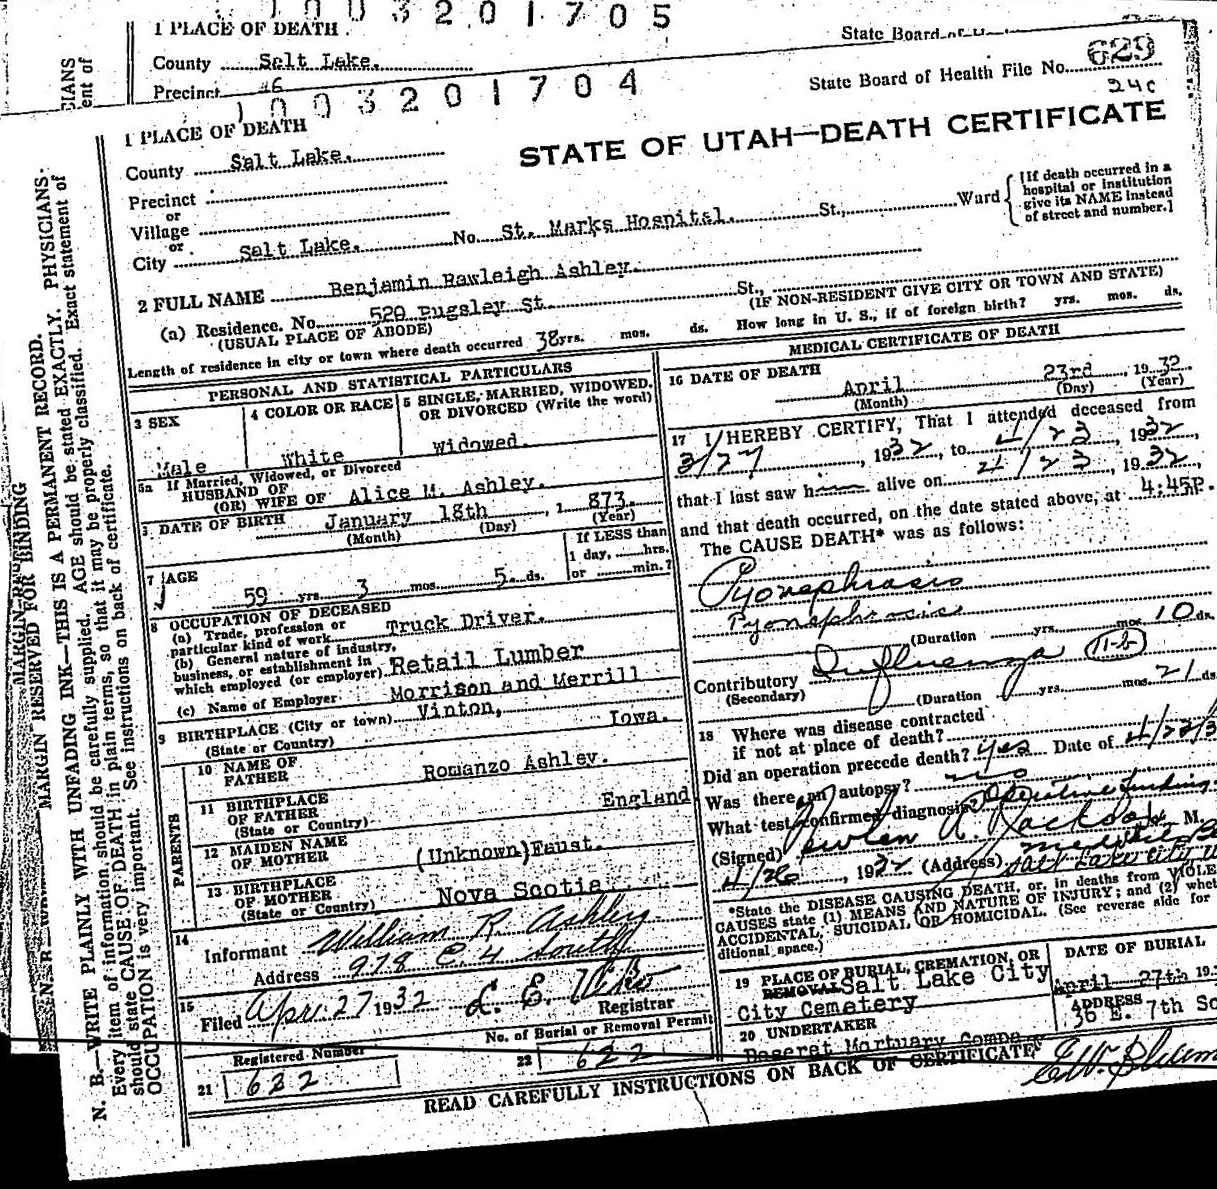 1003201705
1 PLACE OF DEATH
State Board of
County Salt Lake.
Precinct 16
1003201704
State Board of Health File No. 629
24c
1 PLACE OF DEATH
STATE OF UTAH—DEATH CERTIFICATE
County Salt Lake.
Precinct
or
Village
or
City Salt Lake. No. St. Marks Hospital. St., Ward
[If death occurred in a
hospital or institution
give its NAME instead
of street and number.]
2 FULL NAME Benjamin Rawleigh Ashley.
(a) Residence. No. 529 Pugsley St. St.,
(USUAL PLACE OF ABODE)
(IF NON-RESIDENT GIVE CITY OR TOWN AND STATE)
Length of residence in city or town where death occurred 38 yrs. mos. ds. How long in U. S., if of foreign birth? yrs. mos. ds.
PERSONAL AND STATISTICAL PARTICULARS
3 SEX
Male
4 COLOR OR RACE
White
5 SINGLE, MARRIED, WIDOWED,
OR DIVORCED (Write the word)
Widowed.
5a If Married, Widowed, or Divorced
HUSBAND OF
(OR) WIFE OF Alice M. Ashley.
DATE OF BIRTH January 18th, 1873.
(Month) (Day) (Year)
7 AGE
59 yrs. 3 mos. 5 ds.
If LESS than
1 day, hrs.
or min.?
8 OCCUPATION OF DECEASED
(a) Trade, profession or
particular kind of work Truck Driver.
(b) General nature of industry,
business, or establishment in
which employed (or employer) Retail Lumber
(c) Name of Employer Morrison and Merrill
9 BIRTHPLACE (City or town) Vinton,
(State or Country) Iowa.
PARENTS
10 NAME OF
FATHER Romanzo Ashley.
11 BIRTHPLACE
OF FATHER
(State or Country) England
12 MAIDEN NAME
OF MOTHER (Unknown) Faust.
13 BIRTHPLACE
OF MOTHER
(State or Country) Nova Scotia
14
Informant William R Ashley
Address 978 E. 4 South
15
Filed Apr. 27 1932
Registrar
No. of Burial or Removal Permit
Registered Number
21 622
22 622
MEDICAL CERTIFICATE OF DEATH
16 DATE OF DEATH
April 23rd, 1932.
(Month) (Day) (Year)
17 I HEREBY CERTIFY, That I attended deceased from
3/27, 1932, to 4/23, 1932,
that I last saw him alive on 4/23, 1932,
and that death occurred, on the date stated above, at 4.45P.
The CAUSE DEATH* was as follows:
Pyonephrosis
Pyonephrosis
(Duration yrs. mos. 10 ds.
Contributory Influenza 11-b
(Secondary)
(Duration yrs. mos. 21 ds.
18 Where was disease contracted
if not at place of death?
Did an operation precede death? yes Date of 4/22/3
Was there an autopsy? no
What test confirmed diagnosis? Operative findings
(Signed) R. Jackson M.
4/26, 1932 (Address) Medical
Salt Lake City
*State the DISEASE CAUSING DEATH, or, in deaths from VIOLE
CAUSES state (1) MEANS AND NATURE OF INJURY; and (2) whet
ACCIDENTAL, SUICIDAL OR HOMICIDAL. (See reverse side for
ditional space.)
19 PLACE OF BURIAL, CREMATION, OR
REMOVAL Salt Lake City
City Cemetery
DATE OF BURIAL
April 27th 19
20 UNDERTAKER
Deseret Mortuary Company
ADDRESS
36 E. 7th So
READ CAREFULLY INSTRUCTIONS ON BACK OF CERTIFICATE
MARGIN RESERVED FOR BINDING
N. B.—WRITE PLAINLY WITH UNFADING INK—THIS IS A PERMANENT RECORD.
Every item of information should be carefully supplied. AGE should be stated EXACTLY. PHYSICIANS
should state CAUSE OF DEATH in plain terms, so that it may be properly classified. Exact statement of
OCCUPATION is very important. See instructions on back of certificate.